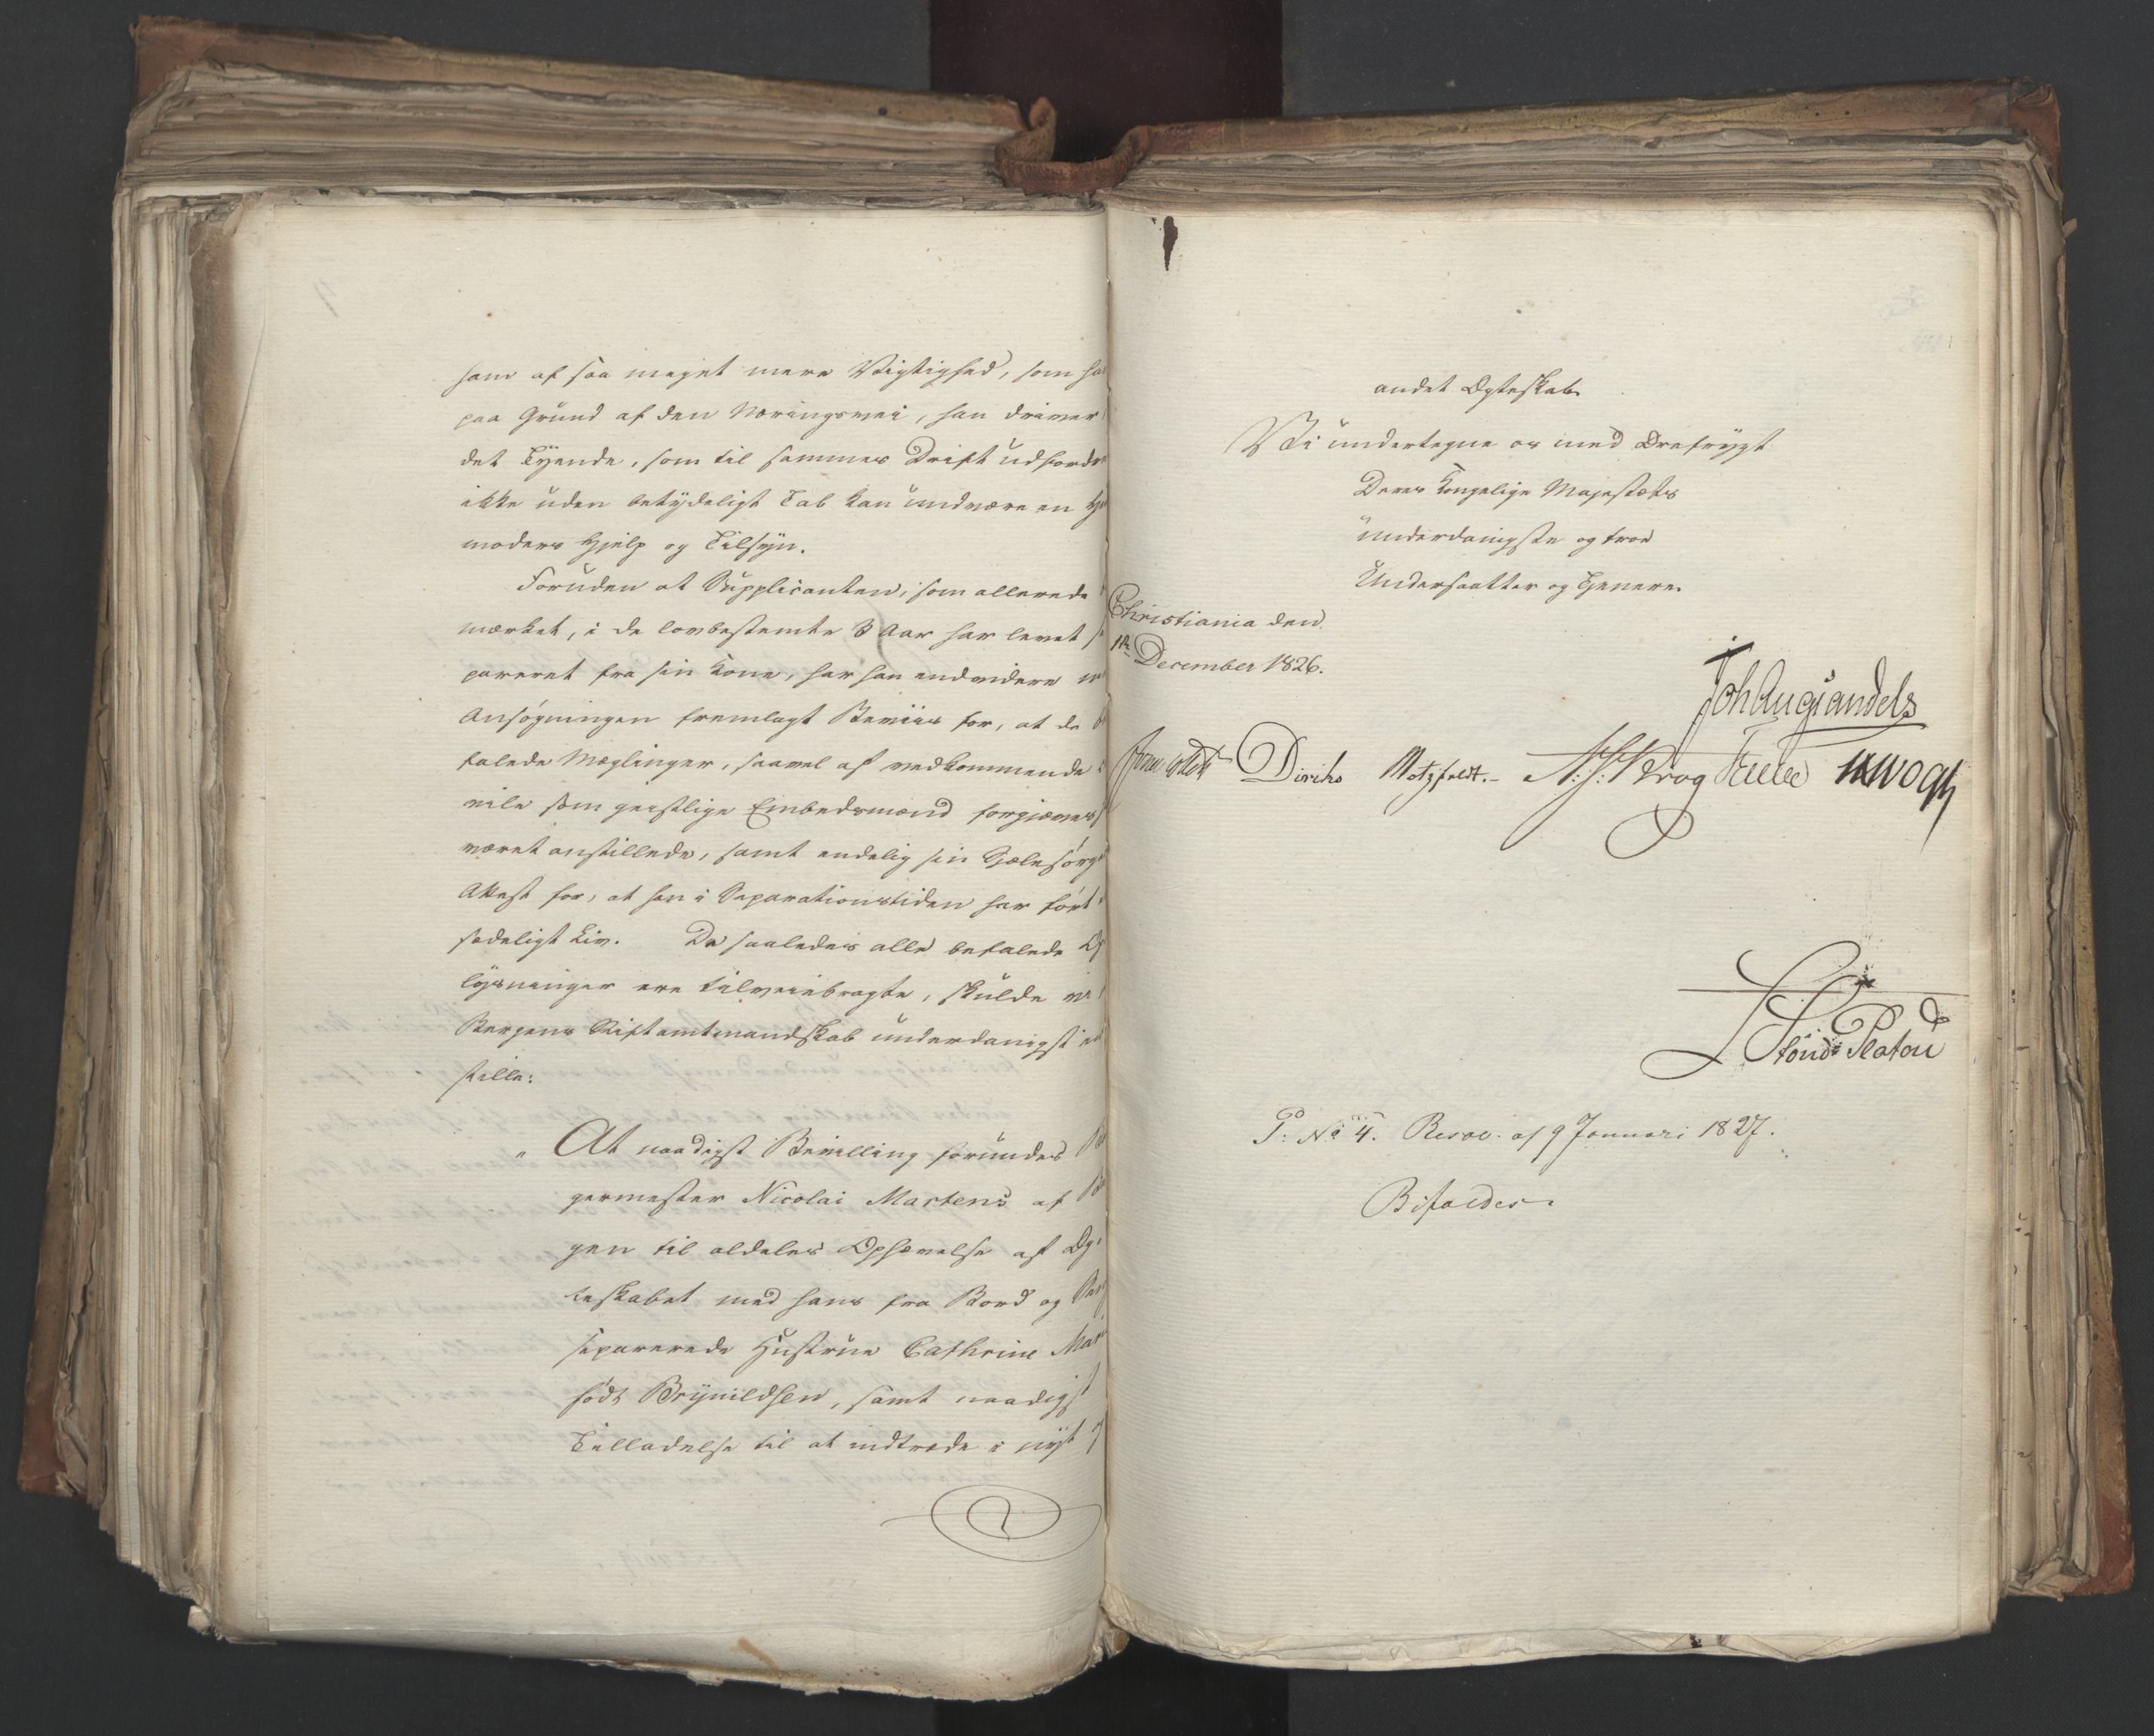 ham af saa meget mere Vigtighed, som ha
paa Grund af den Næringsvei, han driver
det Tyende, som til sammes Drift udfordre
ikke uden betydeligt Tab kan undvære en H
moders Hjelp og Tilsyn.
Foruden at Supplicanten, som allerede
mærket, i de lovbestemte 3 Aar har levet
pareret fra sin Kone, har han endvidere
Ansøgningen fremlagt Beviis for, at de b
falede Mæglinger, saavel af vedkommende
vile som geistlige Embedsmænd forgjæves
været anstillede, samt endelig sin Sjælesørge
Attest for, at han i Separationstiden har ført
sædeligt Liv. Da saaledes alle befalede Op
lysninger ere tilveiebragte, skulde vi
Bergens Stiftamtmandskab underdanigst in
stille:
" At naadigst Bevilling forundes
germester Nicolai Martens af Ber
gen til aldeles Ophævelse af Æg-
teskabet med hans fra Bord og
separerede Hustrue Cathrine Mari
født Brynildsen, samt naadigst
Tilladelse til at indtræde i nyt
andet Ægteskab.
Vi undertegne os med Ærefrygt
Deres Kongelige Majestæts
underdanigste og troe
Undersaatter og Tjenere.
Christiania den
December 1826.
Joh Aug Sandels
Diriks Motzfeldt. Krog JHVogt
Platou
P: No 4. Resol: af 9 Januari 1827.
Bifaldes.